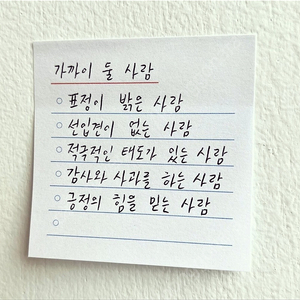 가까이 둘 사람
표정이 밝은 사람
선입견이 없는 사람
적극적인 태도가 있는 사람
감사와 사과를 하는 사람
긍정의 힘을 믿는 사람